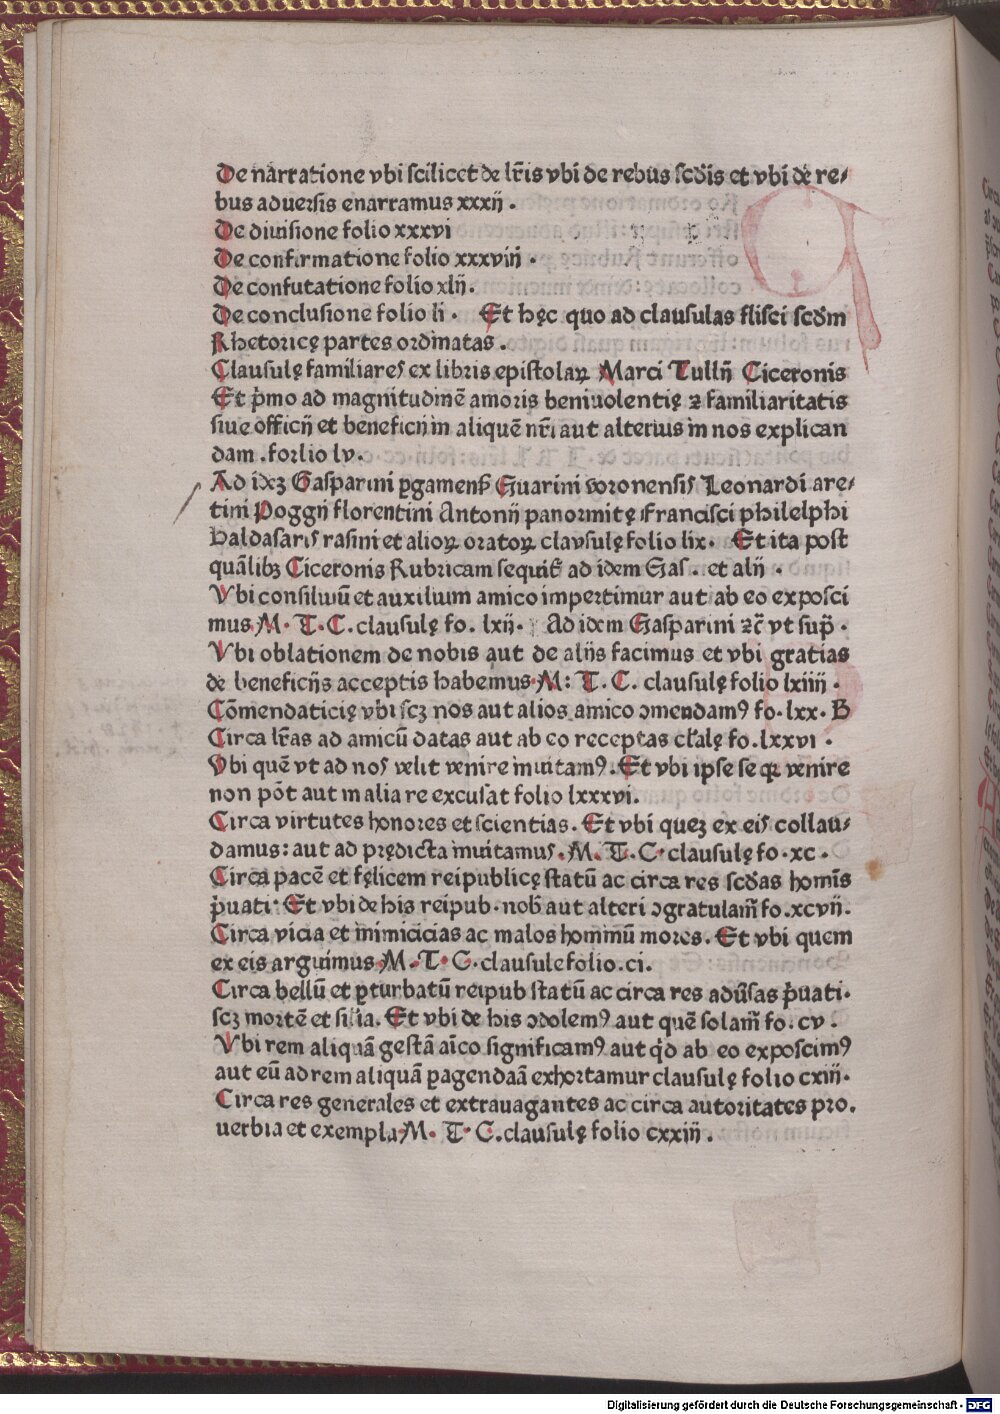 De narratione vbi scilicet de lr̄is vbi de rebus scd̄is et vbī de re⸗
bus aduersis enarramus xxxij .
De diuisione folio xxxvi
De confirmatione folio xxxviij .
De confutatione folio xlij.
De conclusione folio li . Et hęc quo ad clausulas flisci scd̄m
Rhetoricę partes ordinatas .
Clausulę familiares ex libris epistolaꝝ Marci Tullij Ciceronis
Et p̄mo ad magnitudinē amoris beniuolentię ⁊ familiaritatis
siue officij et beneficij in aliquē nr̄i aut alterius in nos explican
dam .forlio lv.
Ad idꝫ Gasparini ꝑgamens̄ Guarini voronensis Leonardi are⸗
tini Poggij florentini Antonij panormitę Francisci philelphi
Baldasaris rasini et alioꝝ oratoꝝ clavsulę folio lix. Et ita post
quālibꝫ Ciceronis Rubricam sequit᷑ ad idem Gas . et alij .
Vbi consiliuū et auxilium amico impertimur aut ab eo exposci
mus M. T. C. clausulę fo. lxij. Ad idem Gasparini ⁊c̄ vt sup̄ .
Vbi oblationem de nobis aut de alijs facimus et vbi gratias
de beneficijs acceptis habemus M: T. C. clausulę folio lxiiij .
Cōmendaticię vbi scꝫ nos aut alios amico ɔmendamꝰ fo. lxx. B
Circa lr̄as ad amicū datas aut ab eo receptas cl̄alę fo. lxxvi .
Vbi quē vt ad nos velit venire inuitamꝰ. Et vbi ipse se qꝝ venire
non pōt aut in alia re excusat folio lxxxvi.
Circa virtutes honores et scientias. Et vbi quēꝫ ex eis collau⸗
damus: aut ad prędicta inuitamus. M. T. C. clausulę fo. xc .
Circa pacē et fęlicem reipublicę statū ac circa res scd̄as homīs
p̄uati. Et vbi de his reipub. nob̄ aut alteri ɔgratulam̄ fo. xcvij.
Circa vicia et inimicicias ac malos hominū mores. Et vbi quem
ex eis arguimus M. T. C. clausule folio .ci.
Circa bellū et ꝑturbatū reipub statū ac circa res adūsas p̄uati.
scꝫ mortē et silia. Et vbi de his ɔdolemꝰ aut quē solam̄ fo. cv .
Vbi rem aliquā gestā aīco significamꝰ aut qd̄ ab eo exposcimꝰ
aut eū ad rem aliquā ꝑagendaā exhortamur clausulę folio cxiij.
Circa res generales et extrauagantes ac circa autoritates pro.
uerbia et exempla M. T. C. clausulę folio cxxiij .
Digitalisierung gefördert durch die Deutsche Forschungsgemeinschaft - DFG